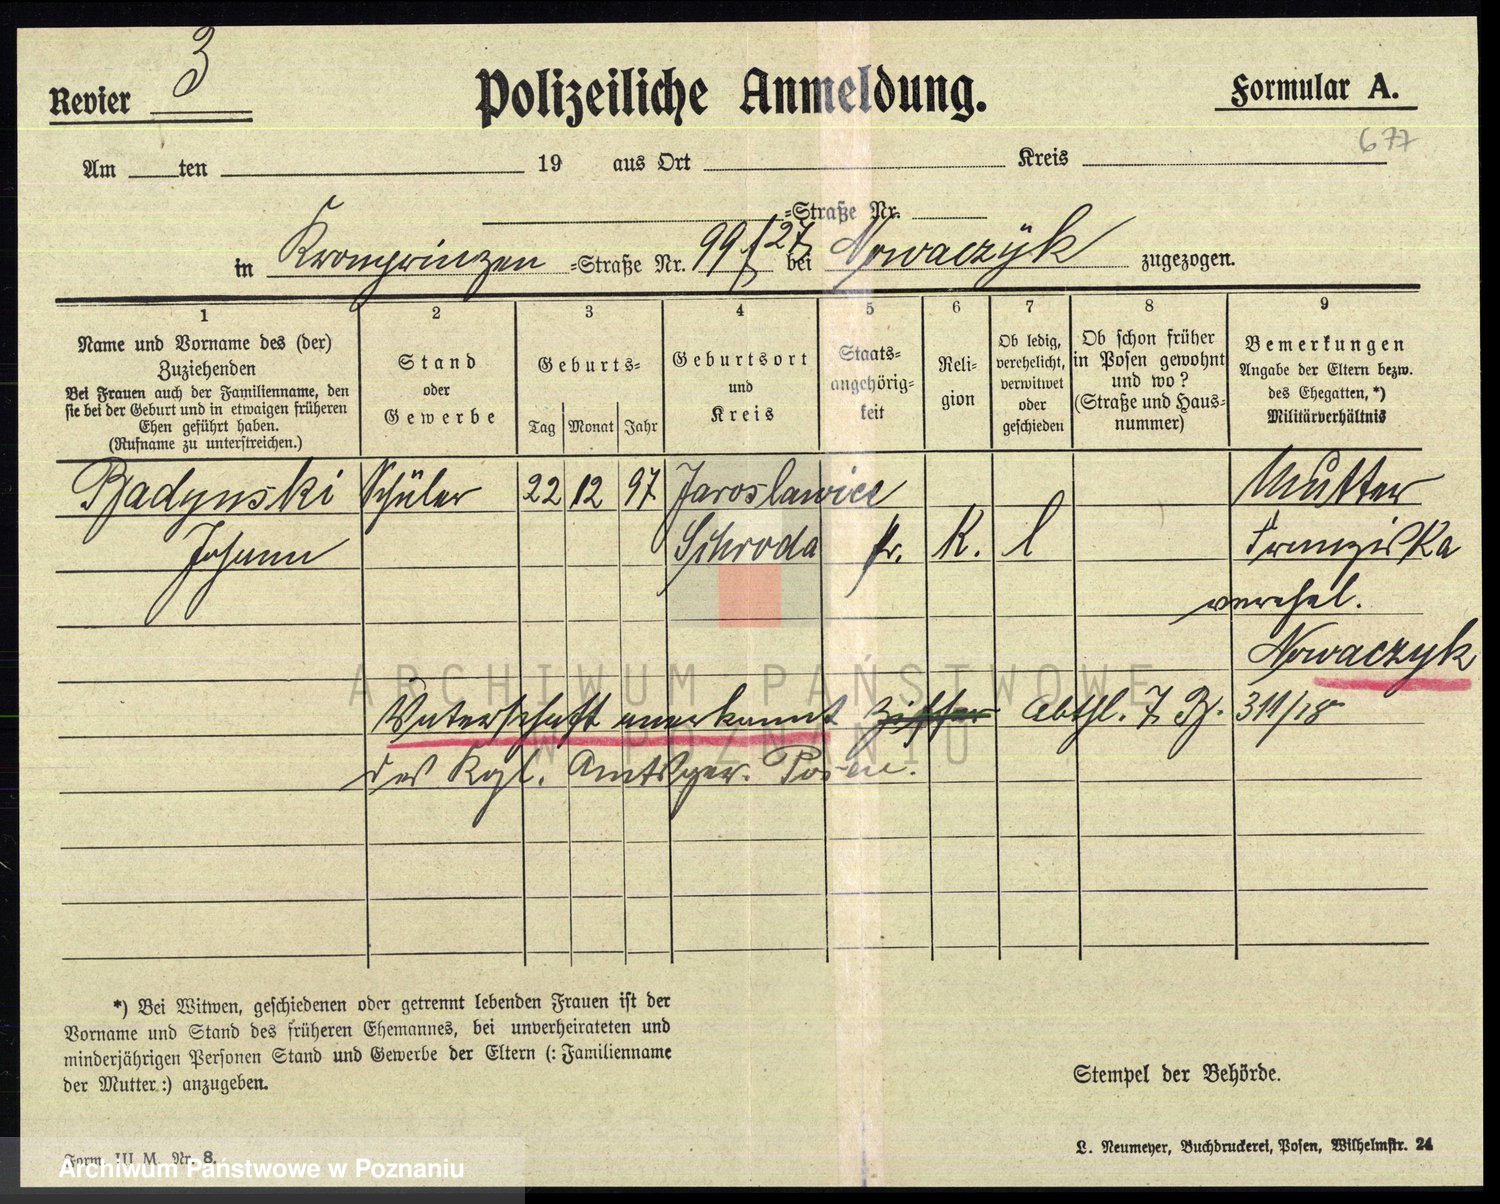 Revier 3
Polizeiliche Anmeldung.
Formular A.
677
Am ten 19 aus Ort Kreis
=Straße Nr.
in Kronprinzen =Straße Nr. 99 / 27 bei Nowaczÿk zugezogen.
1 2 3 4 5 6 7 8 9
Name und Vorname des (der)
Zuziehenden
Bei Frauen auch der Familienname, den
sie bei der Geburt und in etwaigen früheren
Ehen geführt haben.
(Rufname zu unterstreichen.)
Stand
oder
Gewerbe
Geburts=
Tag Monat Jahr
Geburtsort
und
Kreis
Staats=
angehörig=
keit
Reli=
gion
Ob ledig,
verehelicht,
verwitwet
oder
geschieden
Ob schon früher
in Posen gewohnt
und wo?
(Straße und Haus=
nummer)
Bemerkungen
Angabe der Eltern bezw.
des Ehegatten, *)
Militärverhältnis
Radynski Schüler 22 12 97 Jaroslawice Mutter
Johann Schroda Pr. K. l Franziska
verehel.
Nowaczyk
Vaterschaft anerkannt Ziffer Abthl. 7 B. 311/18
des Kgl. Amtsger. Posen.
ARCHIWUM PAŃSTWOWE
W POZNANIU
*) Bei Witwen, geschiedenen oder getrennt lebenden Frauen ist der
Vorname und Stand des früheren Ehemannes, bei unverheirateten und
minderjährigen Personen Stand und Gewerbe der Eltern (: Familienname
der Mutter :) anzugeben.
Stempel der Behörde.
Form. III M. Nr. 8.
L. Neumeyer, Buchdruckerei, Posen, Wilhelmstr. 24
Archiwum Państwowe w Poznaniu